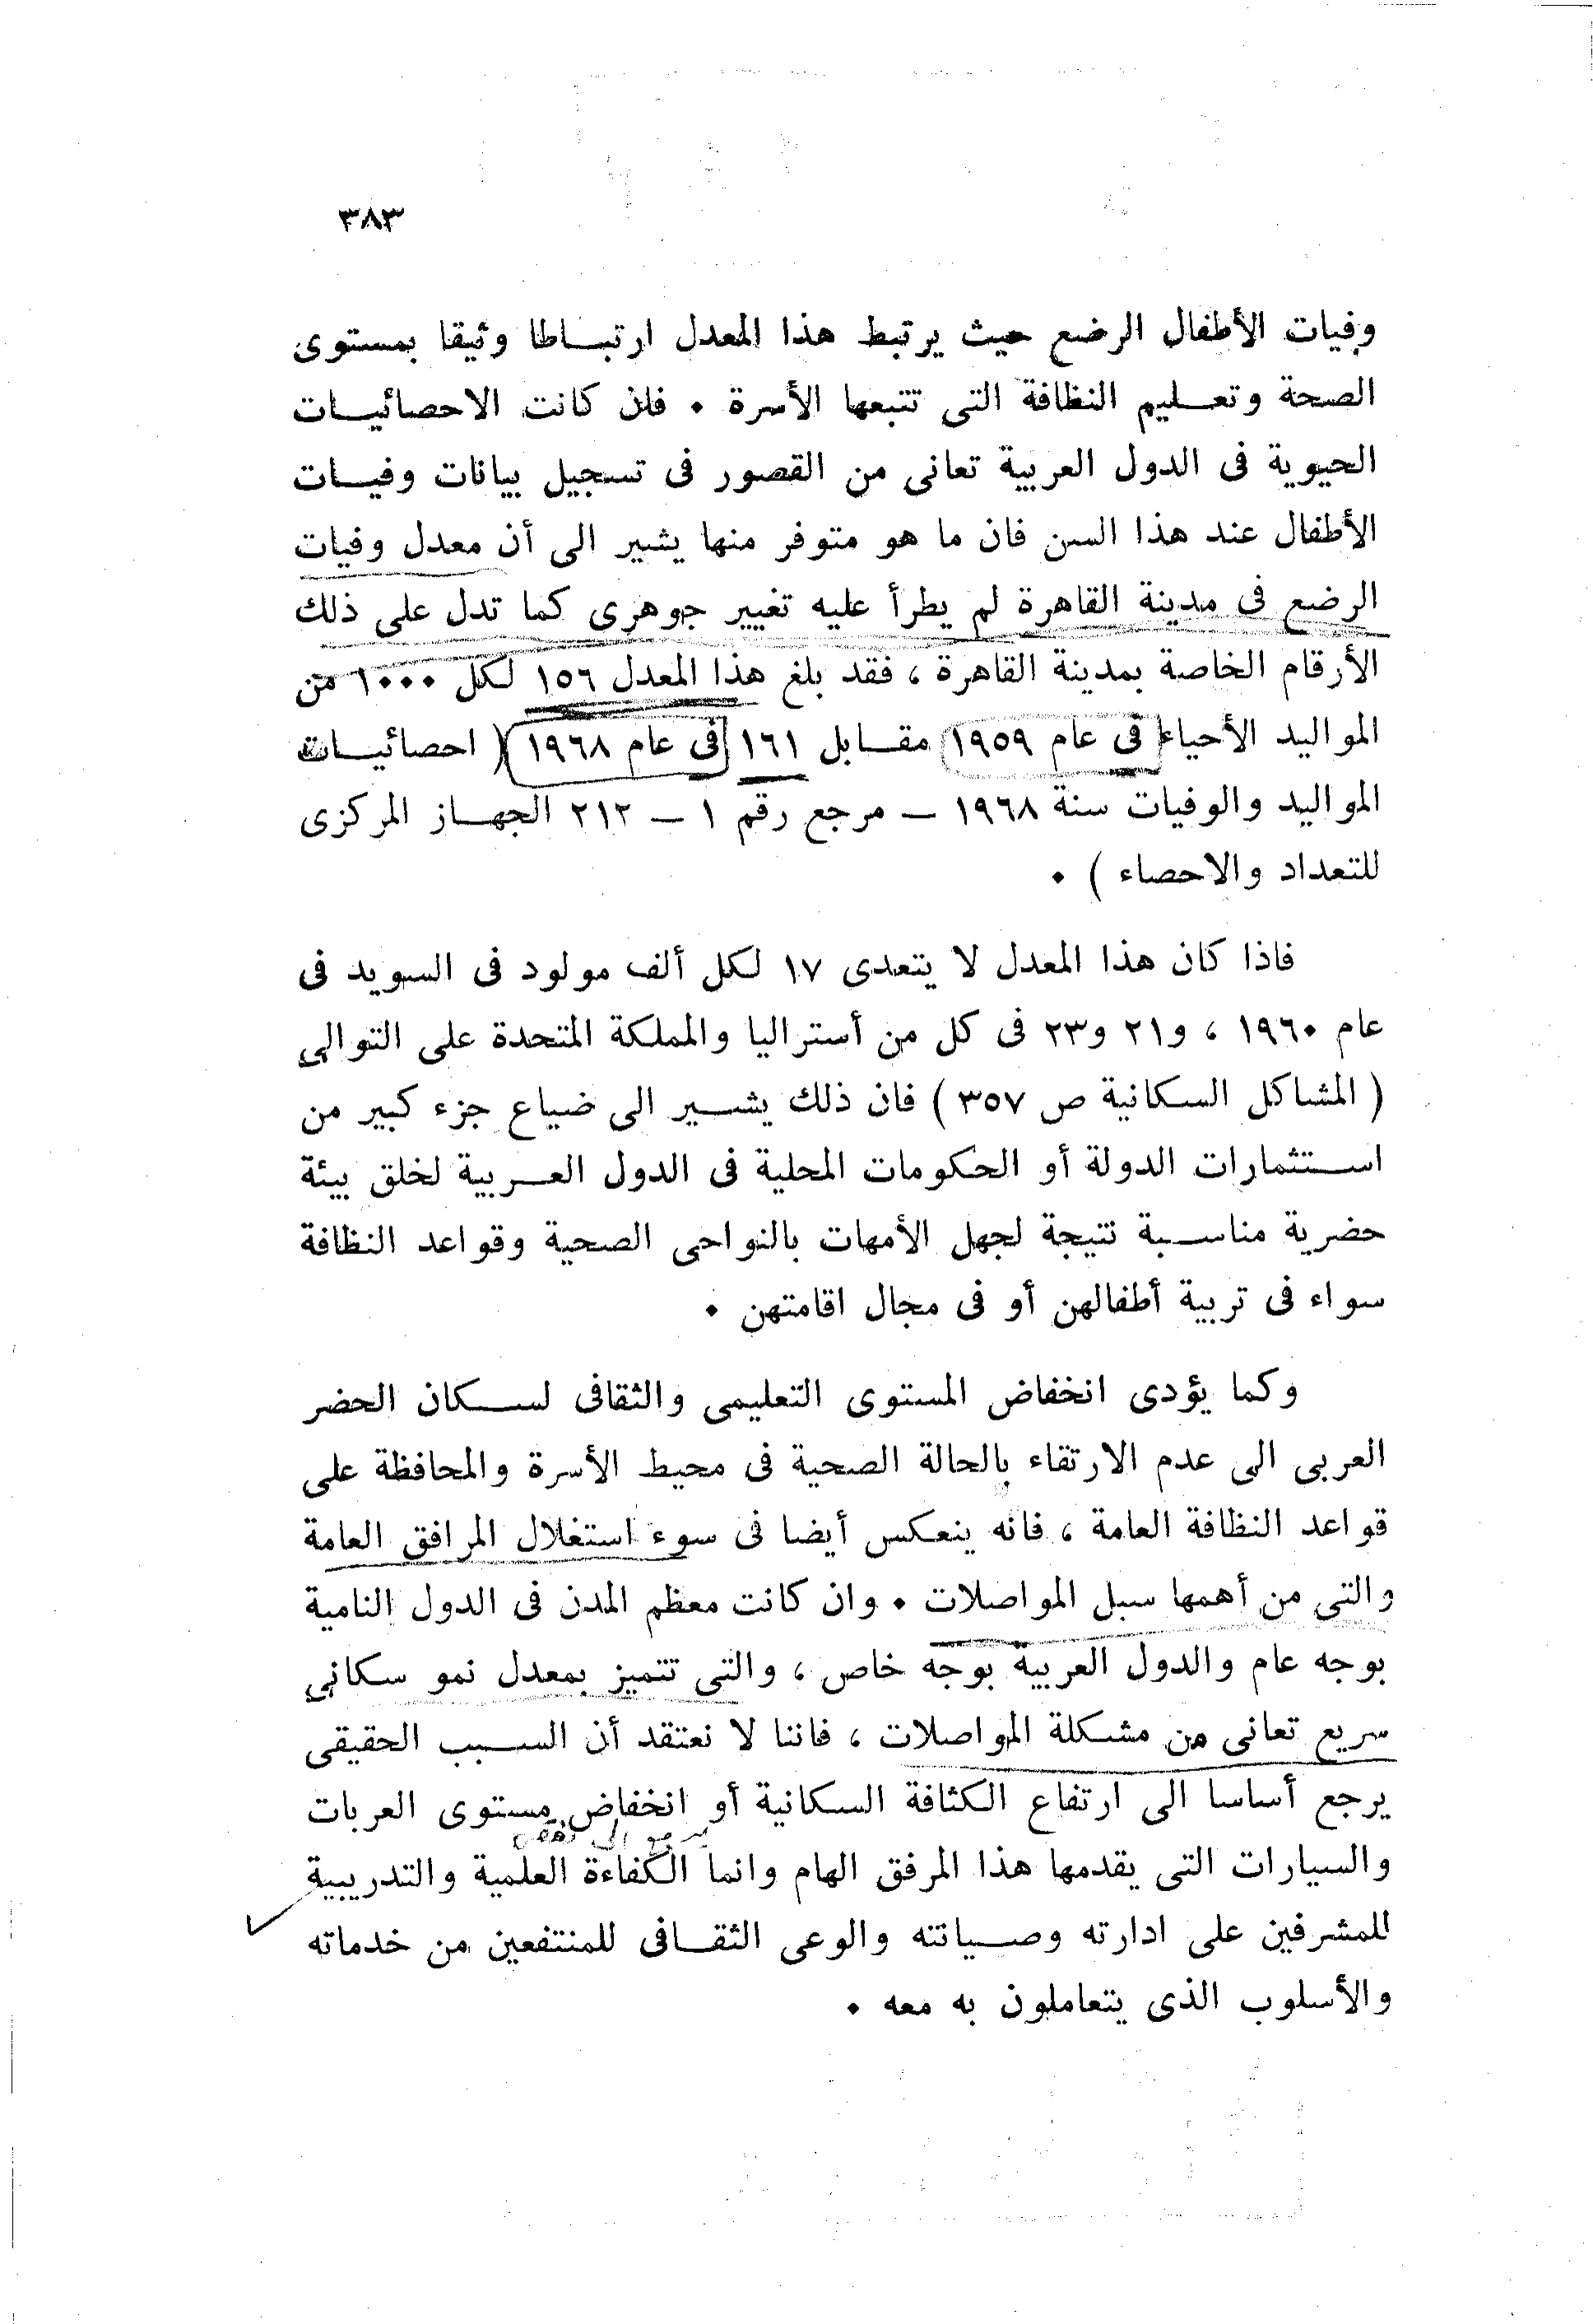 ٣٨٣
وفيات الأطفال الرضع حيث يرتبط هذا المعدل ارتبـاطا وثيقا بمستوى
الصحة وتعـليم النظافة التى تتبعها الأسرة . فلئن كانت الاحصائيـات
الحيوية فى الدول العربية تعانى من القصور فى تسجيل بيانات وفيـات
الأطفال عند هذا السن فان ما هو متوفر منها يشير الى أن معدل وفيات
الرضع فى مدينة القاهرة لم يطرأ عليه تغيير جوهرى كما تدل على ذلك
الأرقام الخاصة بمدينة القاهرة ، فقد بلغ هذا المعدل ١٥٦ لكل ١٠٠٠ من
المواليد الأحياء فى عام ١٩٥٩ مقـابل ١٦١ فى عام ١٩٦٨ ( احصائيـات
المواليد والوفيات سنة ١٩٦٨ – مرجع رقم ١ – ٢١٢ الجهـاز المركزى
للتعداد والاحصاء ) .
فاذا كان هذا المعدل لا يتعدى ١٧ لكل ألف مولود فى السويد فى
عام ١٩٦٠ ، و٢١ و٢٣ فى كل من أستراليا والمملكة المتحدة على التوالى
( المشاكل السكانية ص ٣٥٧ ) فان ذلك يشـير الى ضياع جزء كبير من
اسـتثمارات الدولة أو الحكومات المحلية فى الدول العـربية لخلق بيئة
حضرية مناسـبة نتيجة لجهل الأمهات بالنواحى الصحية وقواعد النظافة
سواء فى تربية أطفالهن أو فى مجال اقامتهن .
وكما يؤدى انخفاض المستوى التعليمى والثقافى لسـكان الحضر
العربى الى عدم الارتقاء بالحالة الصحية فى محيط الأسرة والمحافظة على
قواعد النظافة العامة ، فانه ينعكس أيضا فى سوء استغلال المرافق العامة
والتى من أهمها سبل المواصلات . وان كانت معظم المدن فى الدول النامية
بوجه عام والدول العربية بوجه خاص ، والتى تتميز بمعدل نمو سكانى
سريع تعانى من مشكلة المواصلات ، فاننا لا نعتقد أن السـبب الحقيقى
يرجع أساسا الى ارتفاع الكثافة السكانية أو انخفاض مستوى العربات
والسيارات التى يقدمها هذا المرفق الهام وانما الكفاءة العلمية والتدريبية
للمشرفين على ادارته وصـيانته والوعى الثقـافى للمنتفعين من خدماته
والأسلوب الذى يتعاملون به معه .